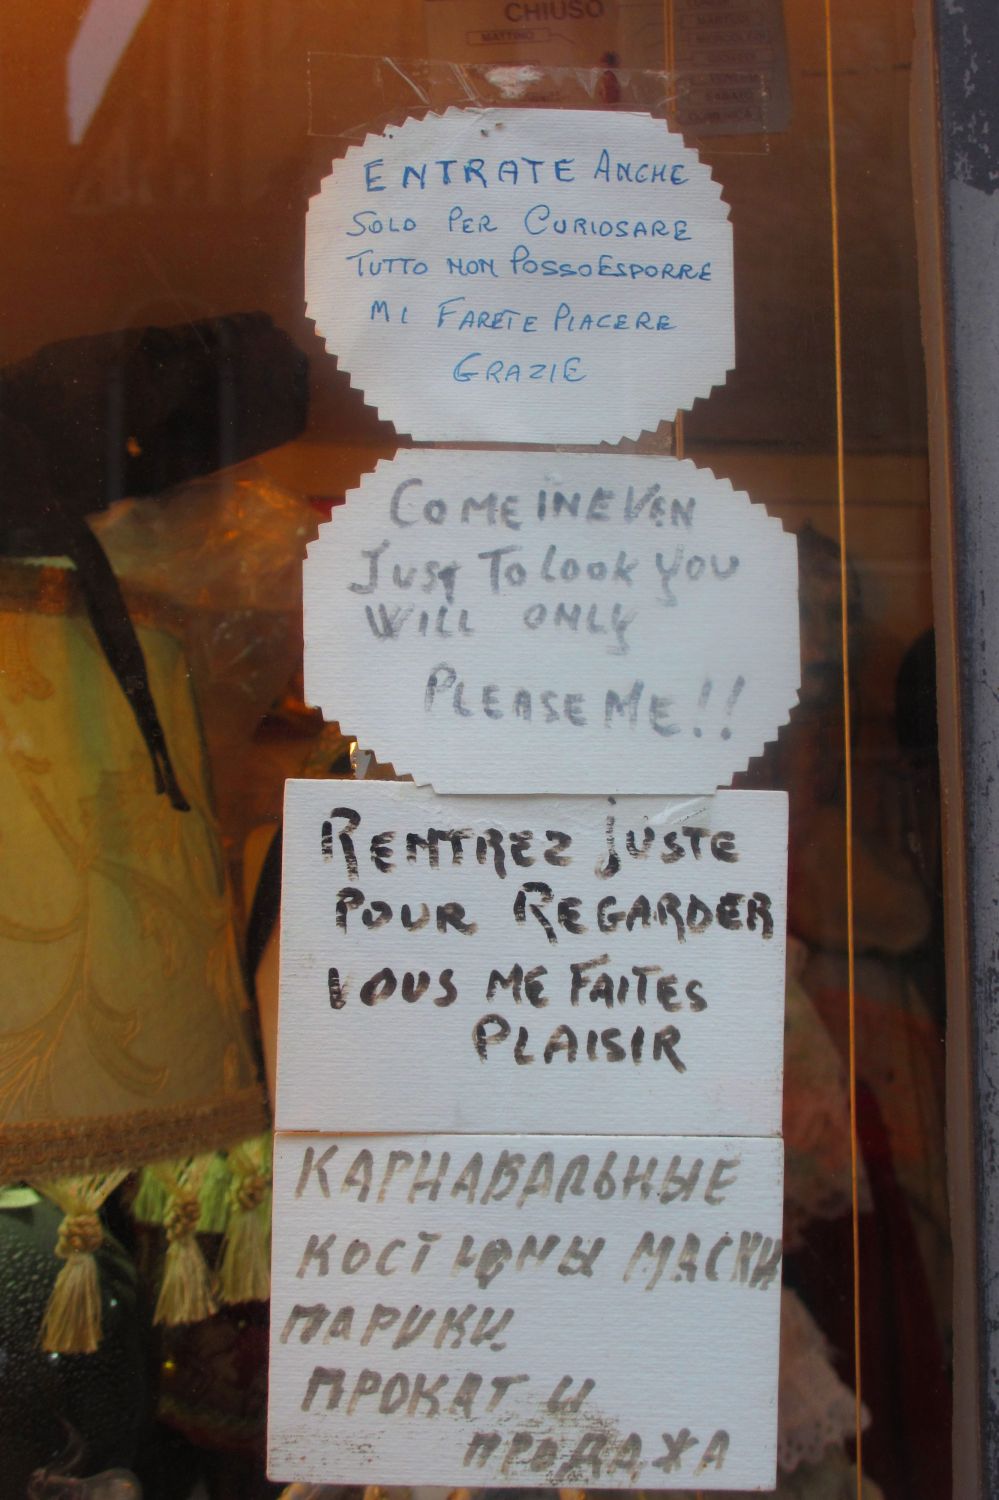 CHIUSO
MATTINO
MARTEDI
MERCOLEDI
GIOVEDI
SABATO
DOMENICA
ENTRATE ANCHE
SOLO PER CURIOSARE
TUTTO NON POSSO ESPORRE
MI FARETE PIACERE
GRAZIE
COME IN EVEN
JUST TO LOOK YOU
WILL ONLY
PLEASE ME!!
RENTREZ JUSTE
POUR REGARDER
VOUS ME FAITES
PLAISIR
КАРНАВАЛЬНЫЕ
КОСТЮМЫ МАСКИ
ПАРИКИ
ПРОКАТ И
ПРОДАЖА